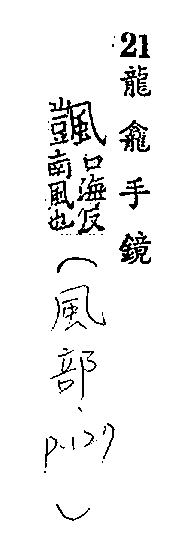 21龍龕手鏡
颽口海反
南風也
(風部、p.127)